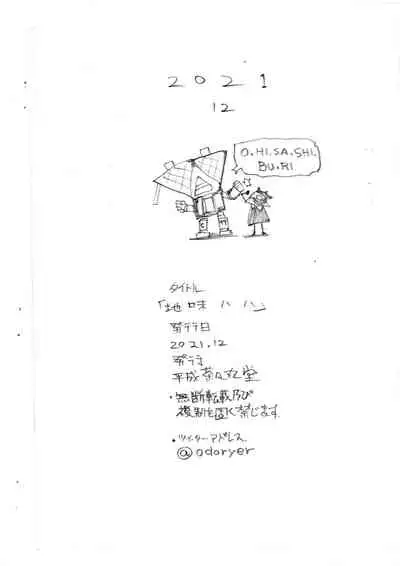 2021
12
O.HI.SA.SHI.
BU.RI
タイトル
「地味ハハ」
発行日
2021.12
発行者
平成堂
・無断転載及び
複製を固く禁じます。
・ツイッターアドレス
@odoryer